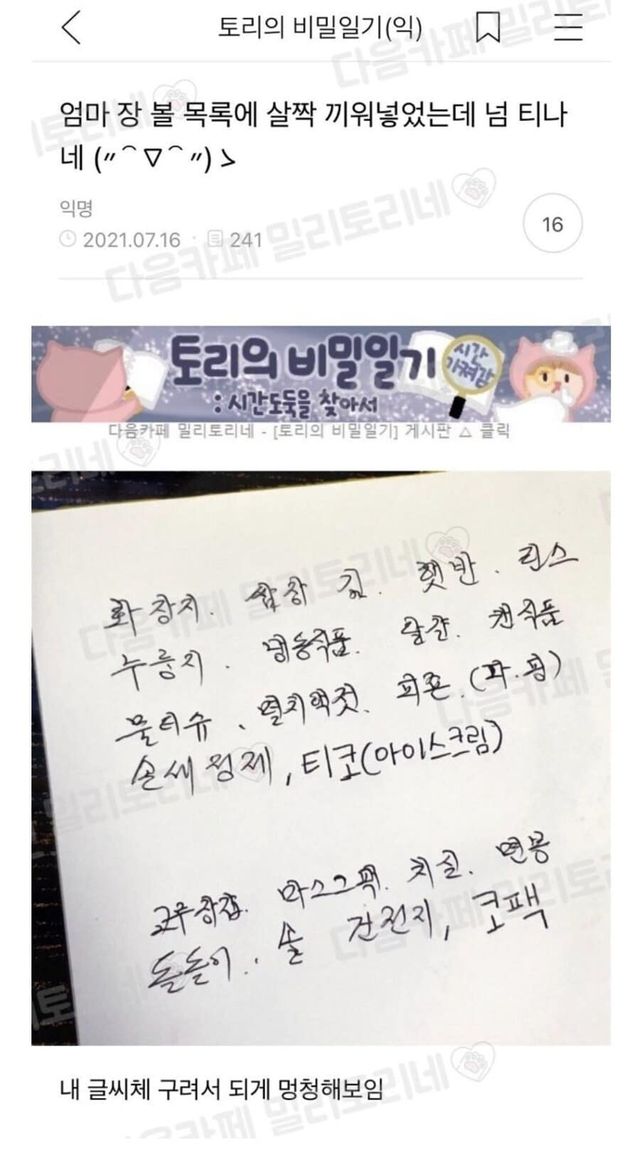 토리의 비밀일기(익)
엄마 장 볼 목록에 살짝 끼워넣었는데 넘 티나
네 (〃⌒▽⌒〃)ゝ
익명
2021.07.16 · 241
16
토리의 비밀일기
시간
가져감
: 시간도둑을 찾아서
다음카페 밀리토리네 - [토리의 비밀일기] 게시판 △ 클릭
화장지. 쌈장 김. 햇반. 린스
누룽지. 냉동식품. 달걀. 캔식품
물티슈. 멸치액젓. 피죤. (파.핑)
손세정제, 티코(아이스크림)
고무장갑. 마스크팩. 치실. 면봉
돌돌이.. 솔 건전지, 코팩
내 글씨체 구려서 되게 멍청해보임
다음카페 밀리토리네